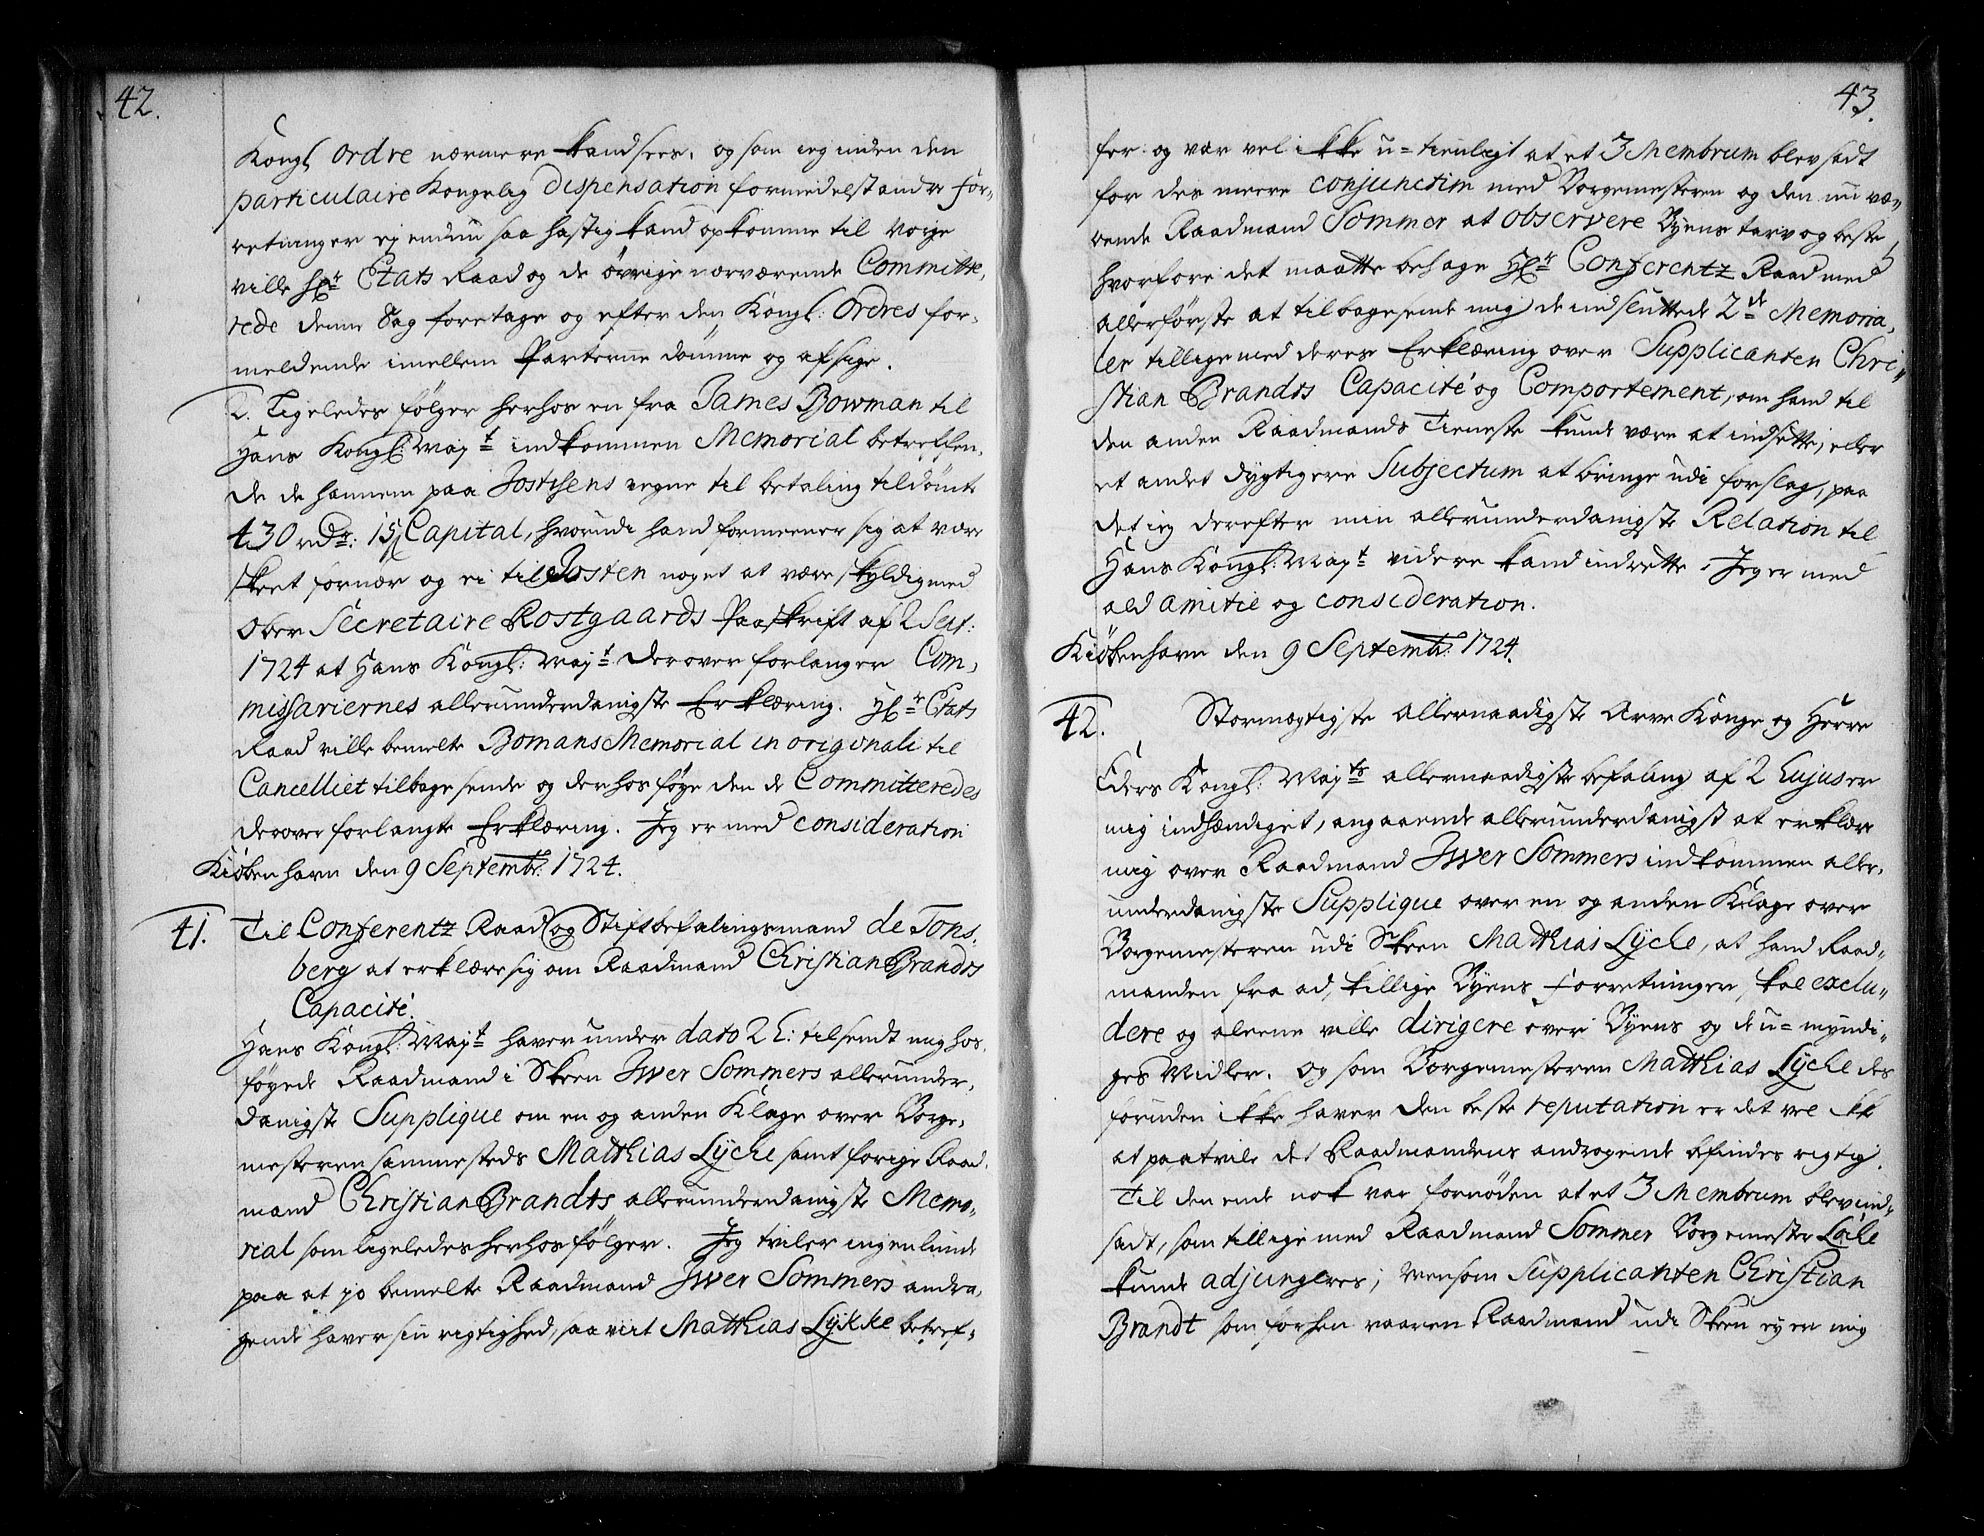 42.
Kongl ordre nærmere kand sees, og som ieg inden den
particulaire Kongelig dispensation formedelst andre for-
retninger ej endnu saa hastig kand opkomme til Norje
ville Hr Etats Raad og de øvrige nærværende Committe,
rede denne Sag foretage og efter den Kongl: Ordres for-
meldende imellem Parterne dømme og afsige.
D. Ligeledes følger herhos en fra James Bowman til
Hans Kongl: Mayt indkommen Memorial betreffen,
de de hannem paa Jostisens vegne til betaling tildømte
430 rdr: 15ß Capital, hvorudi hand formeener sig at være
skeet fornær og ei til Josten noget at være skyldig med
ober Secretaire Rostgaards Paaskrift af 2 Sept:
1724 at Hans Kongl: Mayt derover forlanger Com,
missariernes allerunderdanigste Erklæring. Hr Etats
Raad ville bemelte Bomans Memorial in originali til
Cancelliet tilbage sende og derhos føye den de Committeredes
derover forlangte Erklæring. Jeg er med consideration
Kiøbenhavn den 9 Septembr: 1724.
41. Til Conferentz Raad og Stiftsbefalingsmand de Tons,
berg at erklære sig om Raadmand Christian Brandts
Capacité.
Hans Kongl: Mayt haver under dato 2 h: tilsendt mig hos,
føyede Raadmand i Skeen Iwer Sommers allerunder,
danigste Supplique om en og anden Klage over Borge,
mesteren sammesteds Matthias Lyche samt forige Raad,
mand Christian Brandts allerunderdanigste Memo,,
rial som ligeledes herhos følger. Jeg tviler ingenlunde
paa at jo bemelte Raadmand Iwer Sommers andra,
gende haver sin rigtighed, saa vit Matthias Lykke betref-
43.
fer: og var vel ikke u-tienligt at et 3 Membrum blev sadt
for des meere conjunctim med Borgemesteren og den nu væ,,
rende Raadmand Sommer at observere Byens tarv og beste,
hvorfore det maatte behage Hr Conferentz Raad med
allerførste at tilbagesende mig de indsluttede 2de Memoria,
ler tillige med deres Erklæring over Supplicanten Chri,,
stian Brandts Capacité og Comportement, om hand til
den anden Raadmands Tieneste kunde være at indsette, eller
et andet dygtigere Subjectum at bringe udi forslag, paa
det ieg derefter min allerunderdanigste Relation til
Hans Kongl: Mayt videre kand indrette. Jeg er med
ald amitie og consideration.
Kiøbenhavn den 9 Septembr: 1724.
42. Stormegtigste allernaadigste Arve Konge og Herre
Eders Kongl: Mayts allernaadigste befaling af 2 hujus er
mig indhændiget, angaaende allerunderdanigst at erklære
mig over Raadmand Iwer Sommers indkommen aller,
underdanigste Supplique over en og anden Klage over
Borgemesteren udi Skeen Matthias Lyche, at hand Raad-
manden fra ad,,skillige Byens forretninger, skal exclu,,
dere og aleene ville dirigere over Byens og de u-myndi,,
ges Midler. Og som Borgemesteren Matthias Lyche des
foruden ikke haver den beste reputation er det vel ikke
at paatvile det Raadmandens andragende befindes rigtig.
Til den ende nok var fornøden at et 3 Membrum blev ind-
sadt, som tillige med Raadmand Sommer Borgemester Löche
kunde adjungeres; Mensom Supplicanten Christian
Brandt som forhen vaaren Raadmand udi Skeen ey er mig